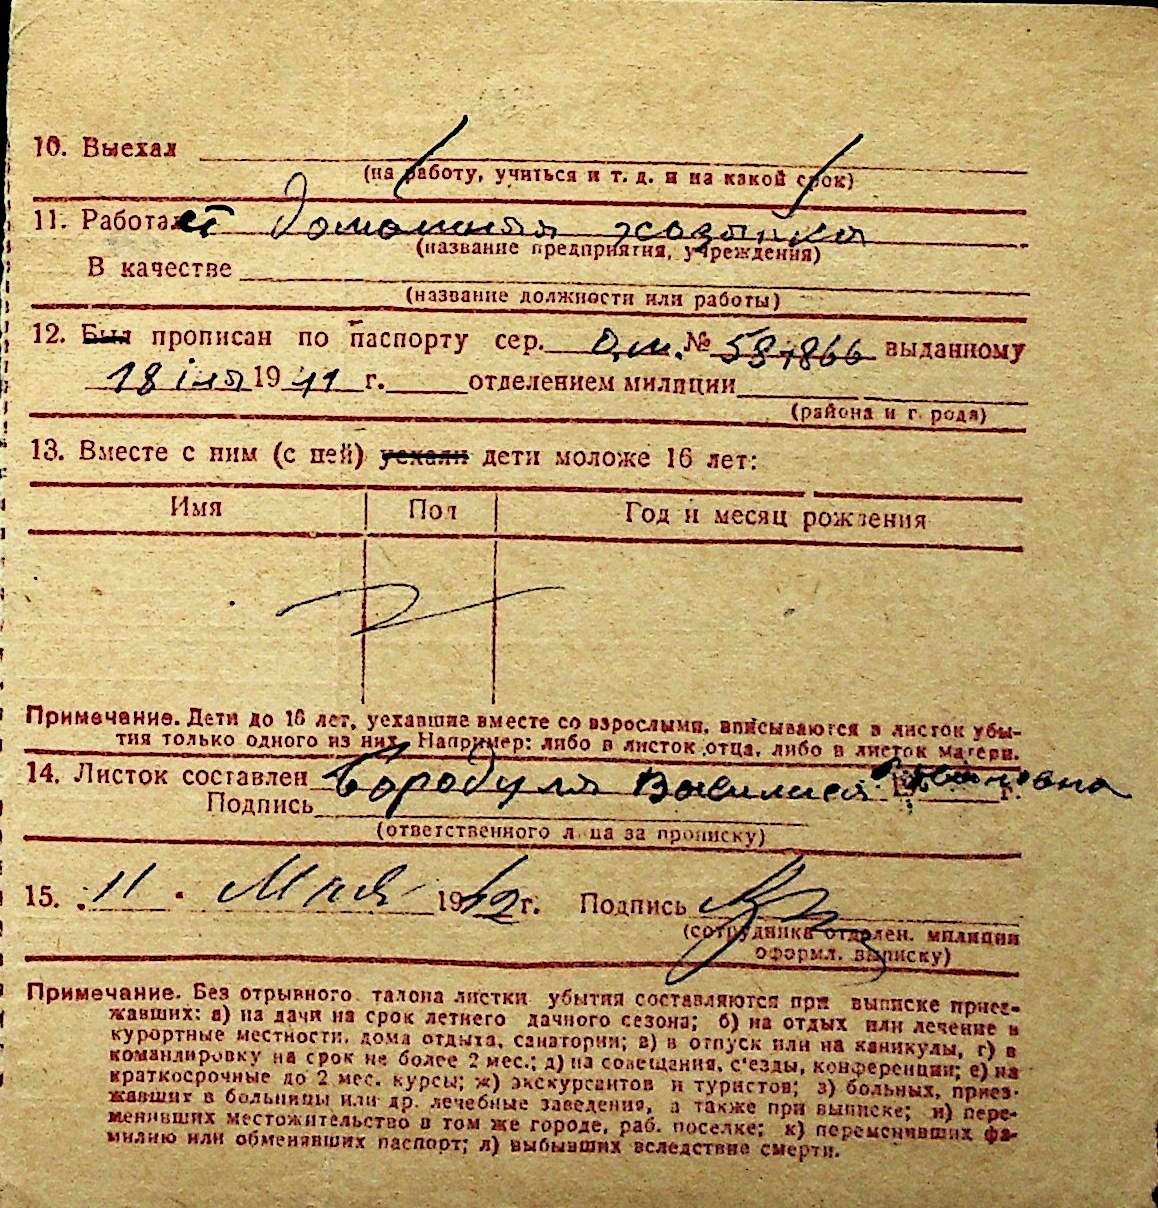 10. Выехал
(на работу, учиться и т. д. и на какой срок)
11. Работает домашняя хозяйка
(название предприятия, учреждения)
В качестве
(название должности или работы)
12. Был прописан по паспорту сер. № выданному
18 1941 г. отделением милиции
(района и г рода)
13. Вместе с ним (с ней) уехали дети моложе 16 лет:
Имя Пол Год и месяц рождения
Примечание. Дети до 16 лет, уехавшие вместе со взрослыми, вписываются в листок убы-
тия только одного из них. Например: либо в листок отца, либо в листок матери.
14. Листок составлен Бородуля г.
Подпись
(ответственного лица за прописку)
15. 11 Мая 1942 г. Подпись
(сотрудника отделен. милиции
оформл. выписку)
Примечание. Без отрывного талона листки убытия составляются при выписке приез-
жавших: а) на дачи на срок летнего дачного сезона; б) на отдых или лечение в
курортные местности, дома отдыха, санатории; в) в отпуск или на каникулы, г) в
командировку на срок не более 2 мес.; д) на совещания, с'езды, конференции; е) на
краткосрочные до 2 мес. курсы; ж) экскурсантов и туристов; з) больных, приез-
жавших в больницы или др. лечебные заведения, а также при выписке; и) пере-
менивших местожительство в том же городе, раб. поселке; к) переменивших фа-
милию или обменявших паспорт; л) выбывших вследствие смерти.